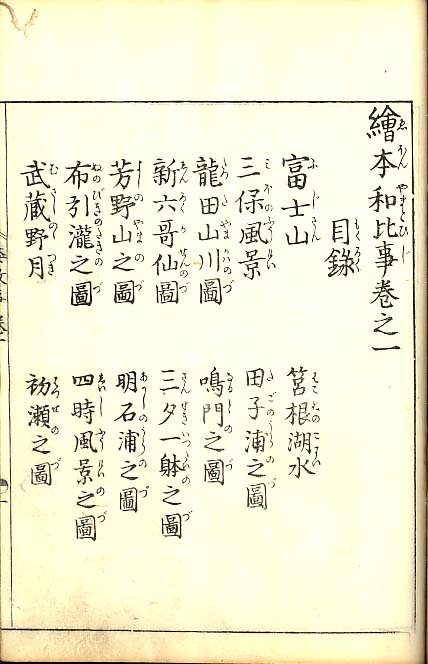 繪本和比事巻之一
目録
富士山
筥根湖水
三保風景
田子浦之圖
龍田山川圖
鳴門之圖
新六哥仙圖
三夕一躰之圖
芳野山之圖
明石浦之圖
布引瀧之圖
四時風景之圖
武蔵野月
初瀬之圖